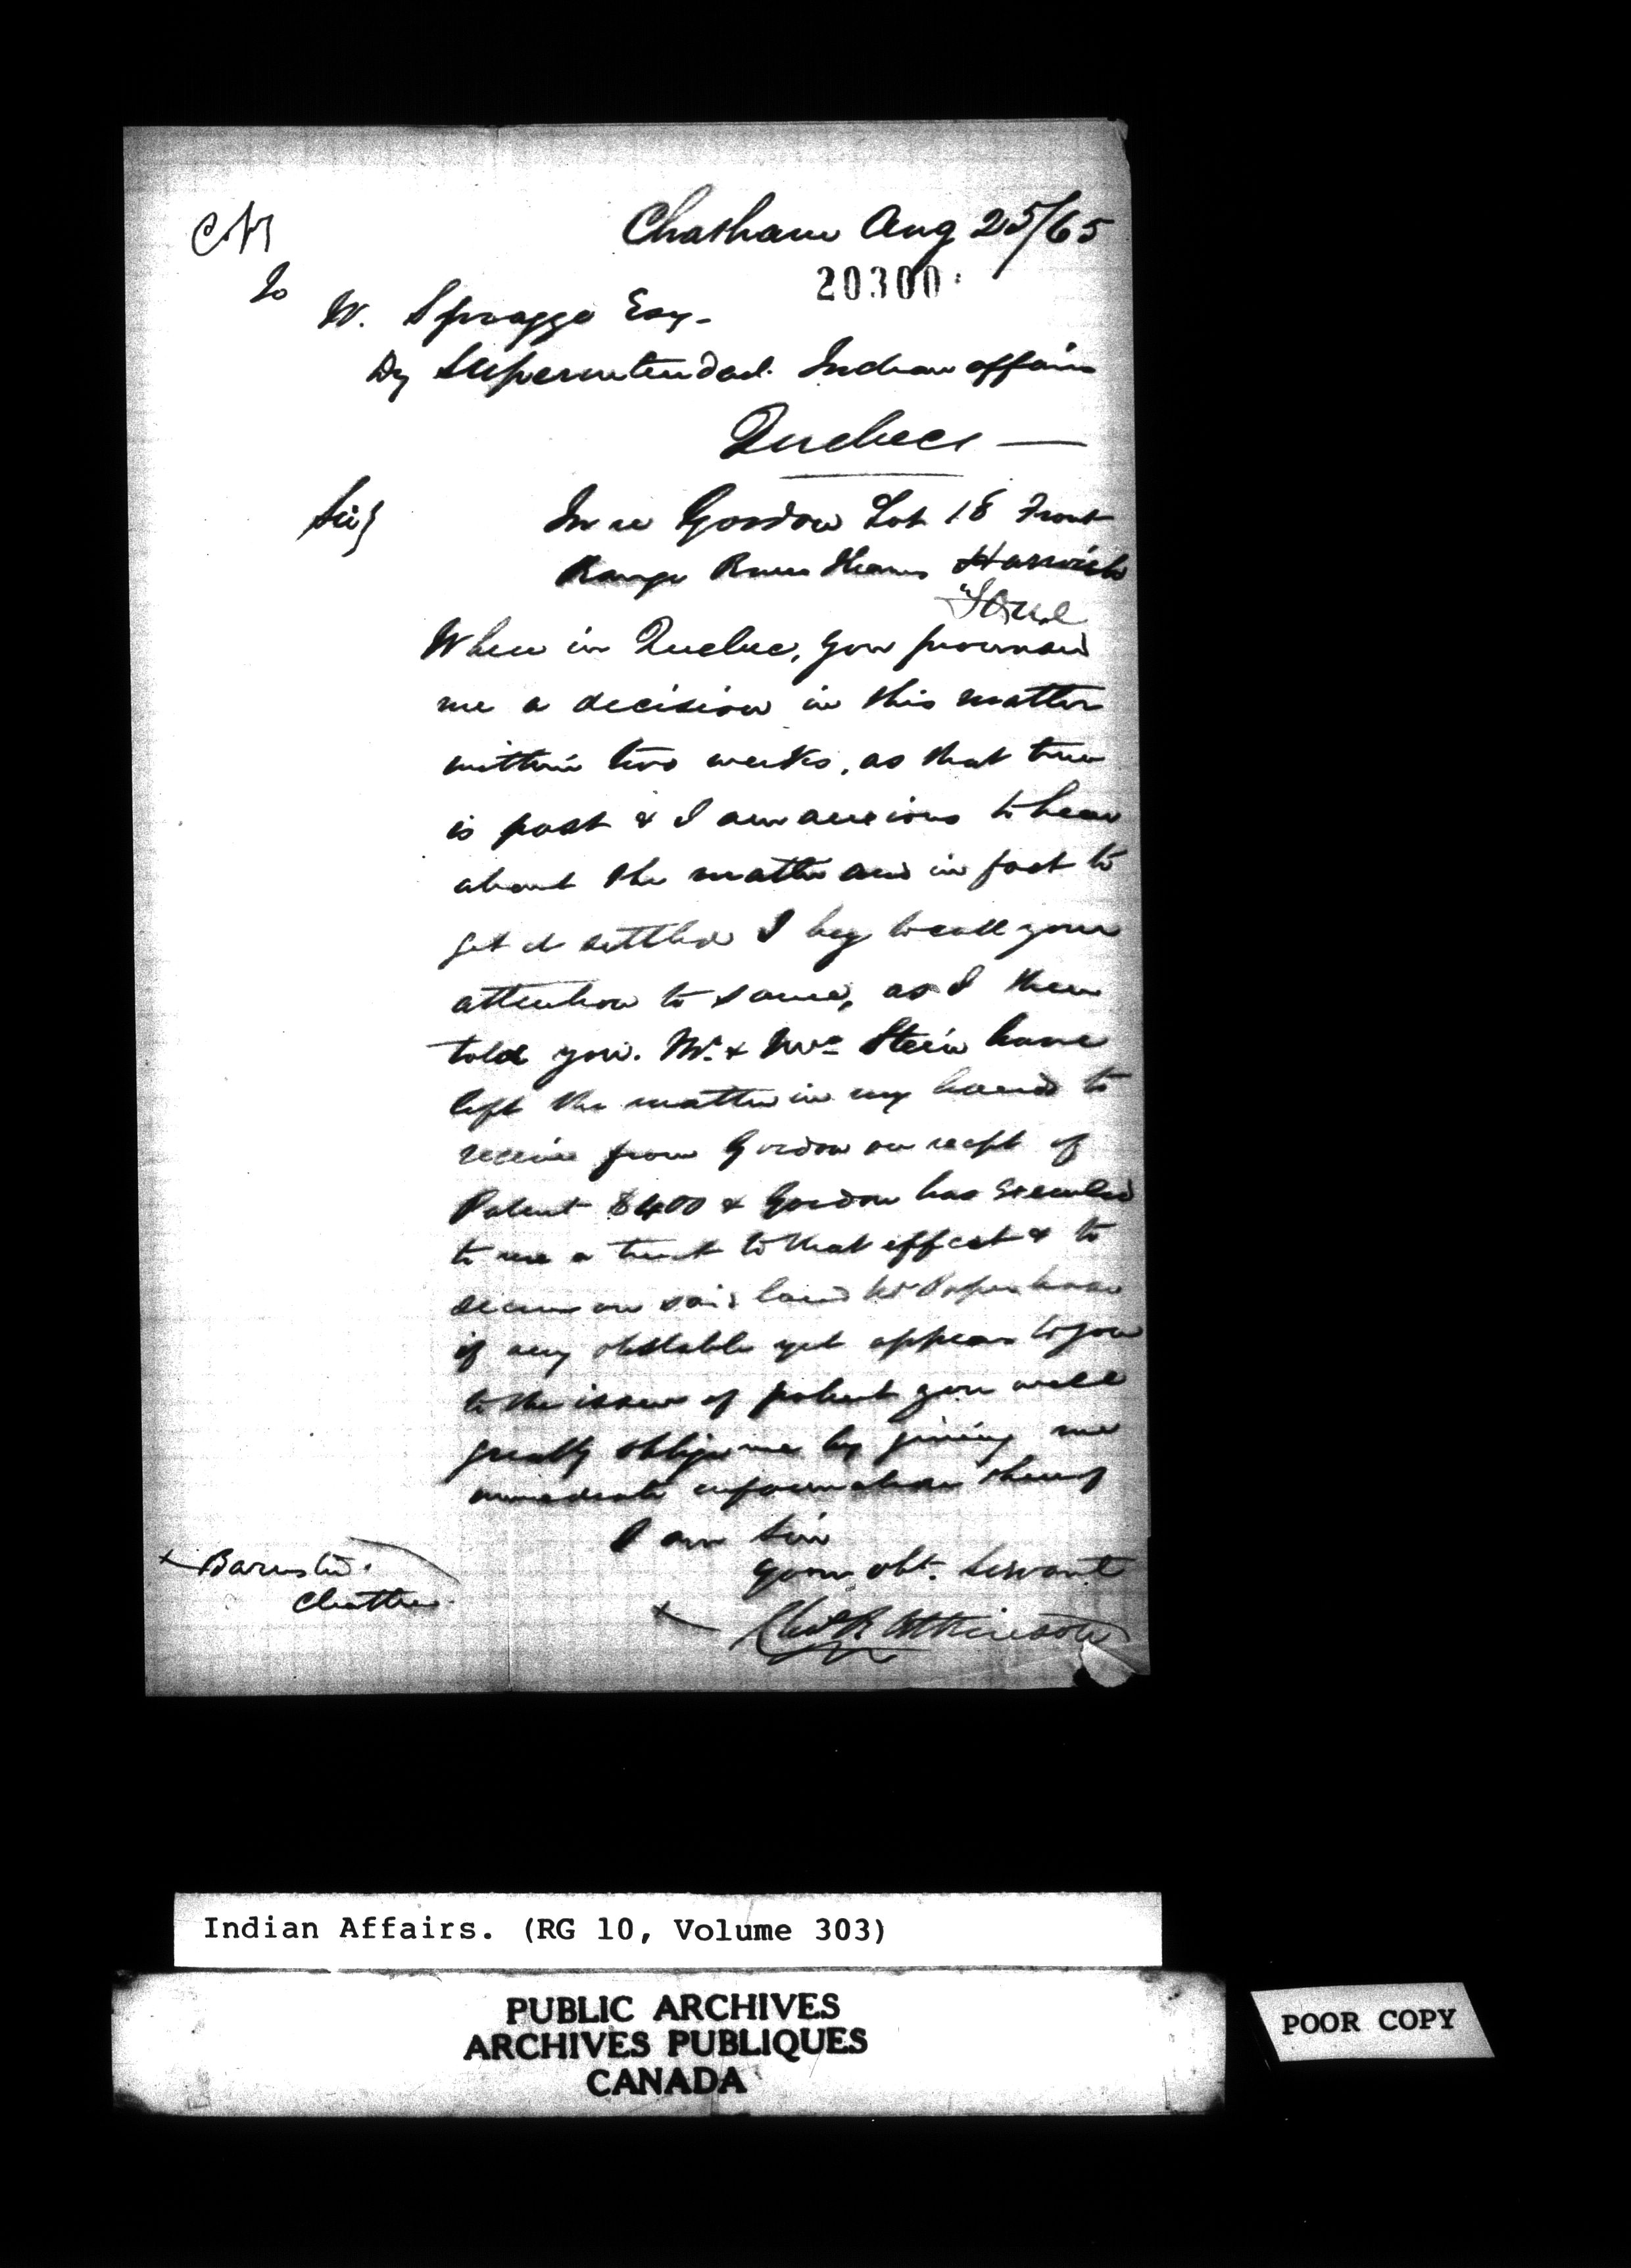 Chatham Aug 25/65
20300
To
W. Spragge Esq.
Dy Superintendent Indian affairs
Quebec
Sir
In re Gordon Lot 18 Front
Range River Thames Harwich
When in Quebec, you promised
me a decision in this matter
within two weeks, as that time
is past & I am anxious to hear
about the matter and in fact to
get it settled I beg to call your
attention to same, as I then
told you. Mr. & Mrs Stein have
left the matter in my hands to
receive from Gordon on recpt of
Patent $400 & Gordon has executed
to me a trust to that effect & to
secure on said land
if any obstacle yet appears to you
to the issue of patent you will
greatly oblige me by giving me
immediate information thereof
I am Sir
your obt. servant
Atkinson
Barrister
Chatham
Indian Affairs. (RG 10, Volume 303)
PUBLIC ARCHIVES
ARCHIVES PUBLIQUES
CANADA
POOR COPY